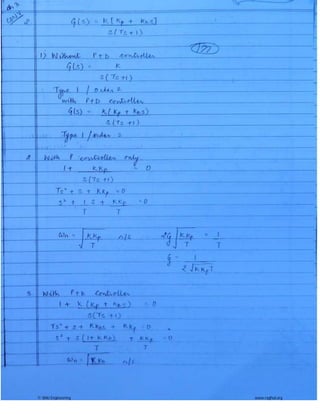 Ch. 3
2. G(s) = K [Kp + KDS]
S(TS+1)
1) Without P+D controller
G(s) = K
S(TS+1)
Type 1 / order 2
with P+D controller
G(s) = K(Kp + KDS)
S(TS+1)
Type 1 / order 2
4. With P controller only
1+ KKp = 0
S(TS+1)
TS² + S + KKp = 0
S² + 1 S + KKp = 0
T T
Wn = √KKp r/s 2ξ√KKp = 1
T T T
ξ = 1
2√KKpT
5. With P+D Controller
1 + K (Kp + KDS) = 0
S(TS+1)
TS² + S + KKDS + KKp = 0
S² + S(1+KKD) + KKp = 0
T T
r/s
© Wiki Engineering
www.raghul.org